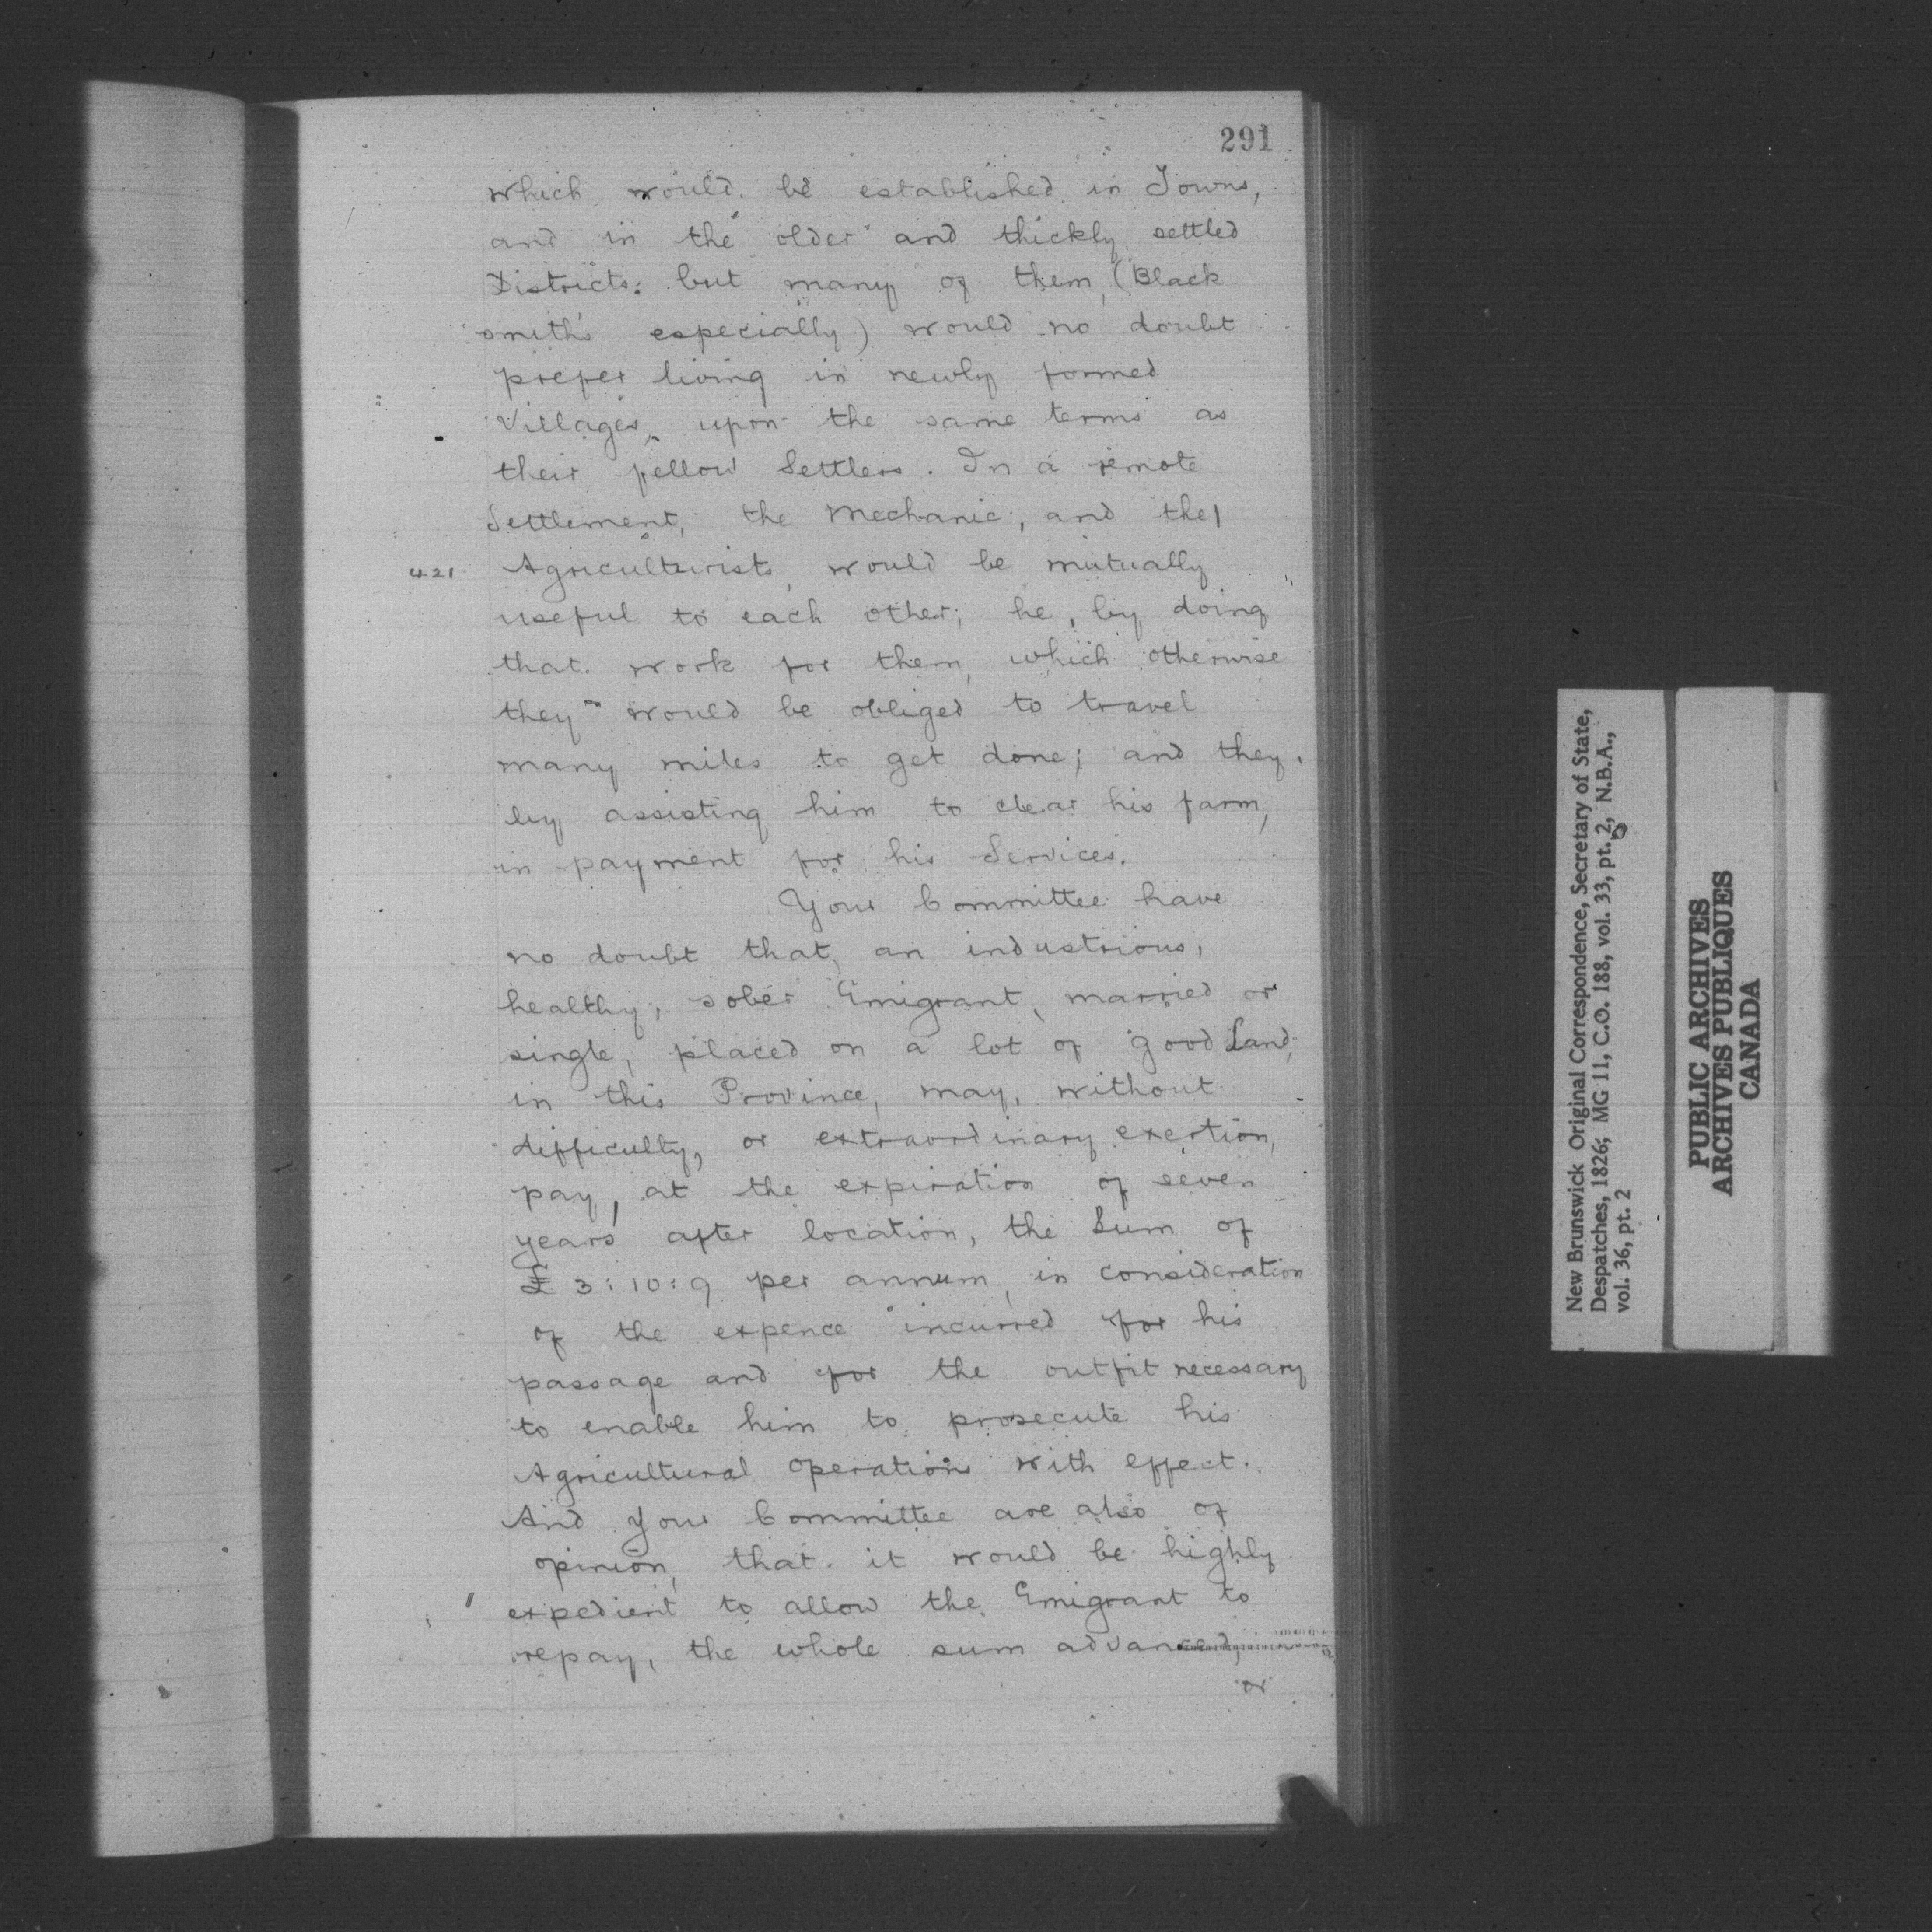 291
which would be established in Towns,
and in the older and thickly settled
Districts: but many of them, (Black
smith's especially) would no doubt
prefer living in newly formed
Villages, upon the same terms as
their fellow Settlers. In a remote
Settlement, the Mechanic, and the
421 Agriculturists, would be mutually
useful to each other; he, by doing
that work for them, which otherwise
they would be obliged to travel
many miles to get done; and they,
by assisting him to clear his farm,
in payment for his Services.
Your Committee have
no doubt that, an industrious,
healthy, sober Emigrant, married or
single, placed on a lot of good Land,
in this Province, may, without
difficulty, or extraordinary exertion,
pay, at the expiration of seven
years after location, the Sum of
£ 3:10:9 per annum, in consideration
of the expence incurred for his
passage and for the outfit necessary
to enable him to prosecute his
Agricultural operations with effect.
And Your Committee are also of
opinion, that it would be highly
expedient to allow the Emigrant to
repay, the whole sum advanced,
or
New Brunswick Original Correspondence, Secretary of State,
Despatches, 1826; MG 11, C.O. 188, vol. 33, pt. 2, N.B.A.,
vol. 36, pt. 2
PUBLIC ARCHIVES
ARCHIVES PUBLIQUES
CANADA